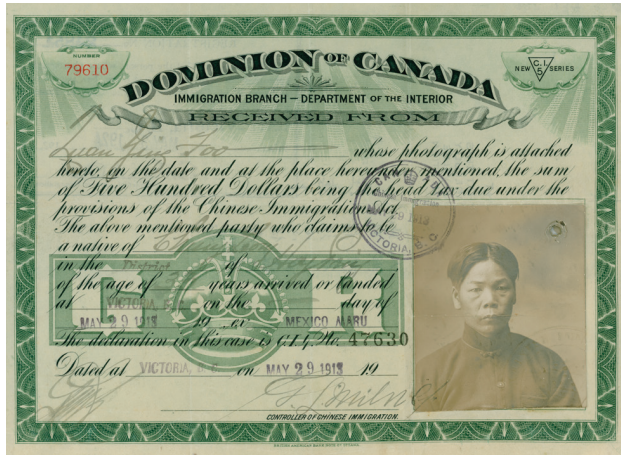 NUMBER
79610
NEW C.I.5 SERIES
DOMINION OF CANADA
IMMIGRATION BRANCH — DEPARTMENT OF THE INTERIOR
RECEIVED FROM
Foo whose photograph is attached
hereto, on the date and at the place hereunder mentioned, the sum
of Five Hundred Dollars being the head tax due under the
provisions of the Chinese Immigration Act.
The above mentioned party who claims to be
a native of
in the District of
of the age of years arrived or landed
at VICTORIA, B.C. on the day of
MAY 29 1918 19 ex MEXICO MARU
The declaration in this case is C.I.4. No. 47630
Dated at VICTORIA, B.C. on MAY 29 1918 19
CONTROLLER OF CHINESE IMMIGRATION.
VICTORIA, B.C.